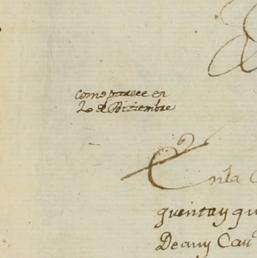 como parece en
20 de Diziembre
En la
quenta y qu
De any Cau